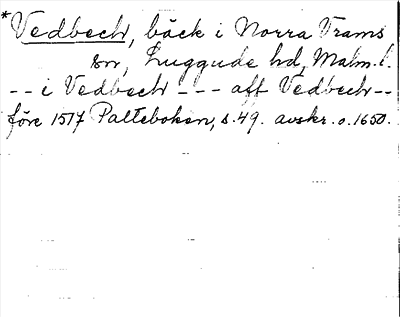 *Vedbech, bäck i Norra Vrams
sn, Luggude hd, Malm. l.
-- i Vedbech --- aff Vedbech--
före 1517 Palteboken, s. 49. avskr. o. 1650.